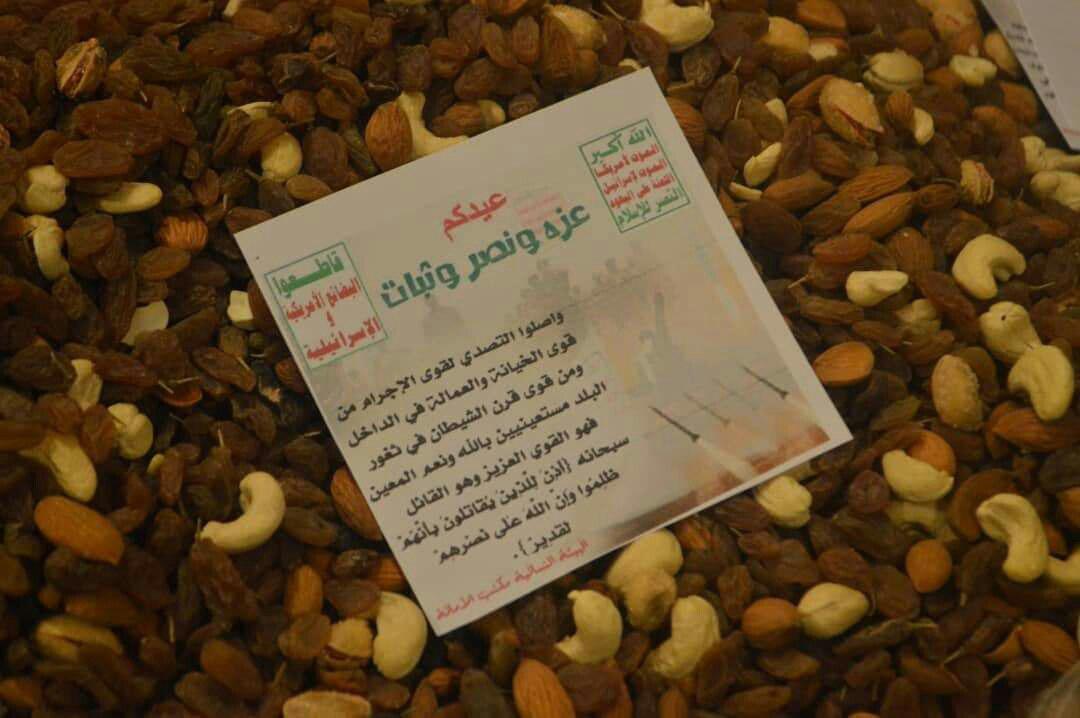 الله أكبر
الموت لأمريكا
الموت لإسرائيل
اللعنة على اليهود
النصر للإسلام
عيدكم
عزه ونصر وثبات
قاطعوا
البضائع الأمريكية
و
الإسرائيلية
واصلوا التصدي لقوى الإجرام من
قوى الخيانة والعمالة في الداخل
ومن قوى قرن الشيطان في ثغور
البلد مستعينيين بالله ونعم المعين
فهو القوي العزيز وهو القائل
سبحانه {أُذِنَ لِلَّذِينَ يُقَاتَلُونَ بِأَنَّهُمْ
ظُلِمُوا وَإِنَّ اللَّهَ عَلَى نَصْرِهِمْ
لَقَدِيرٌ}.
الهيئة النسائية مكتب الأمانة